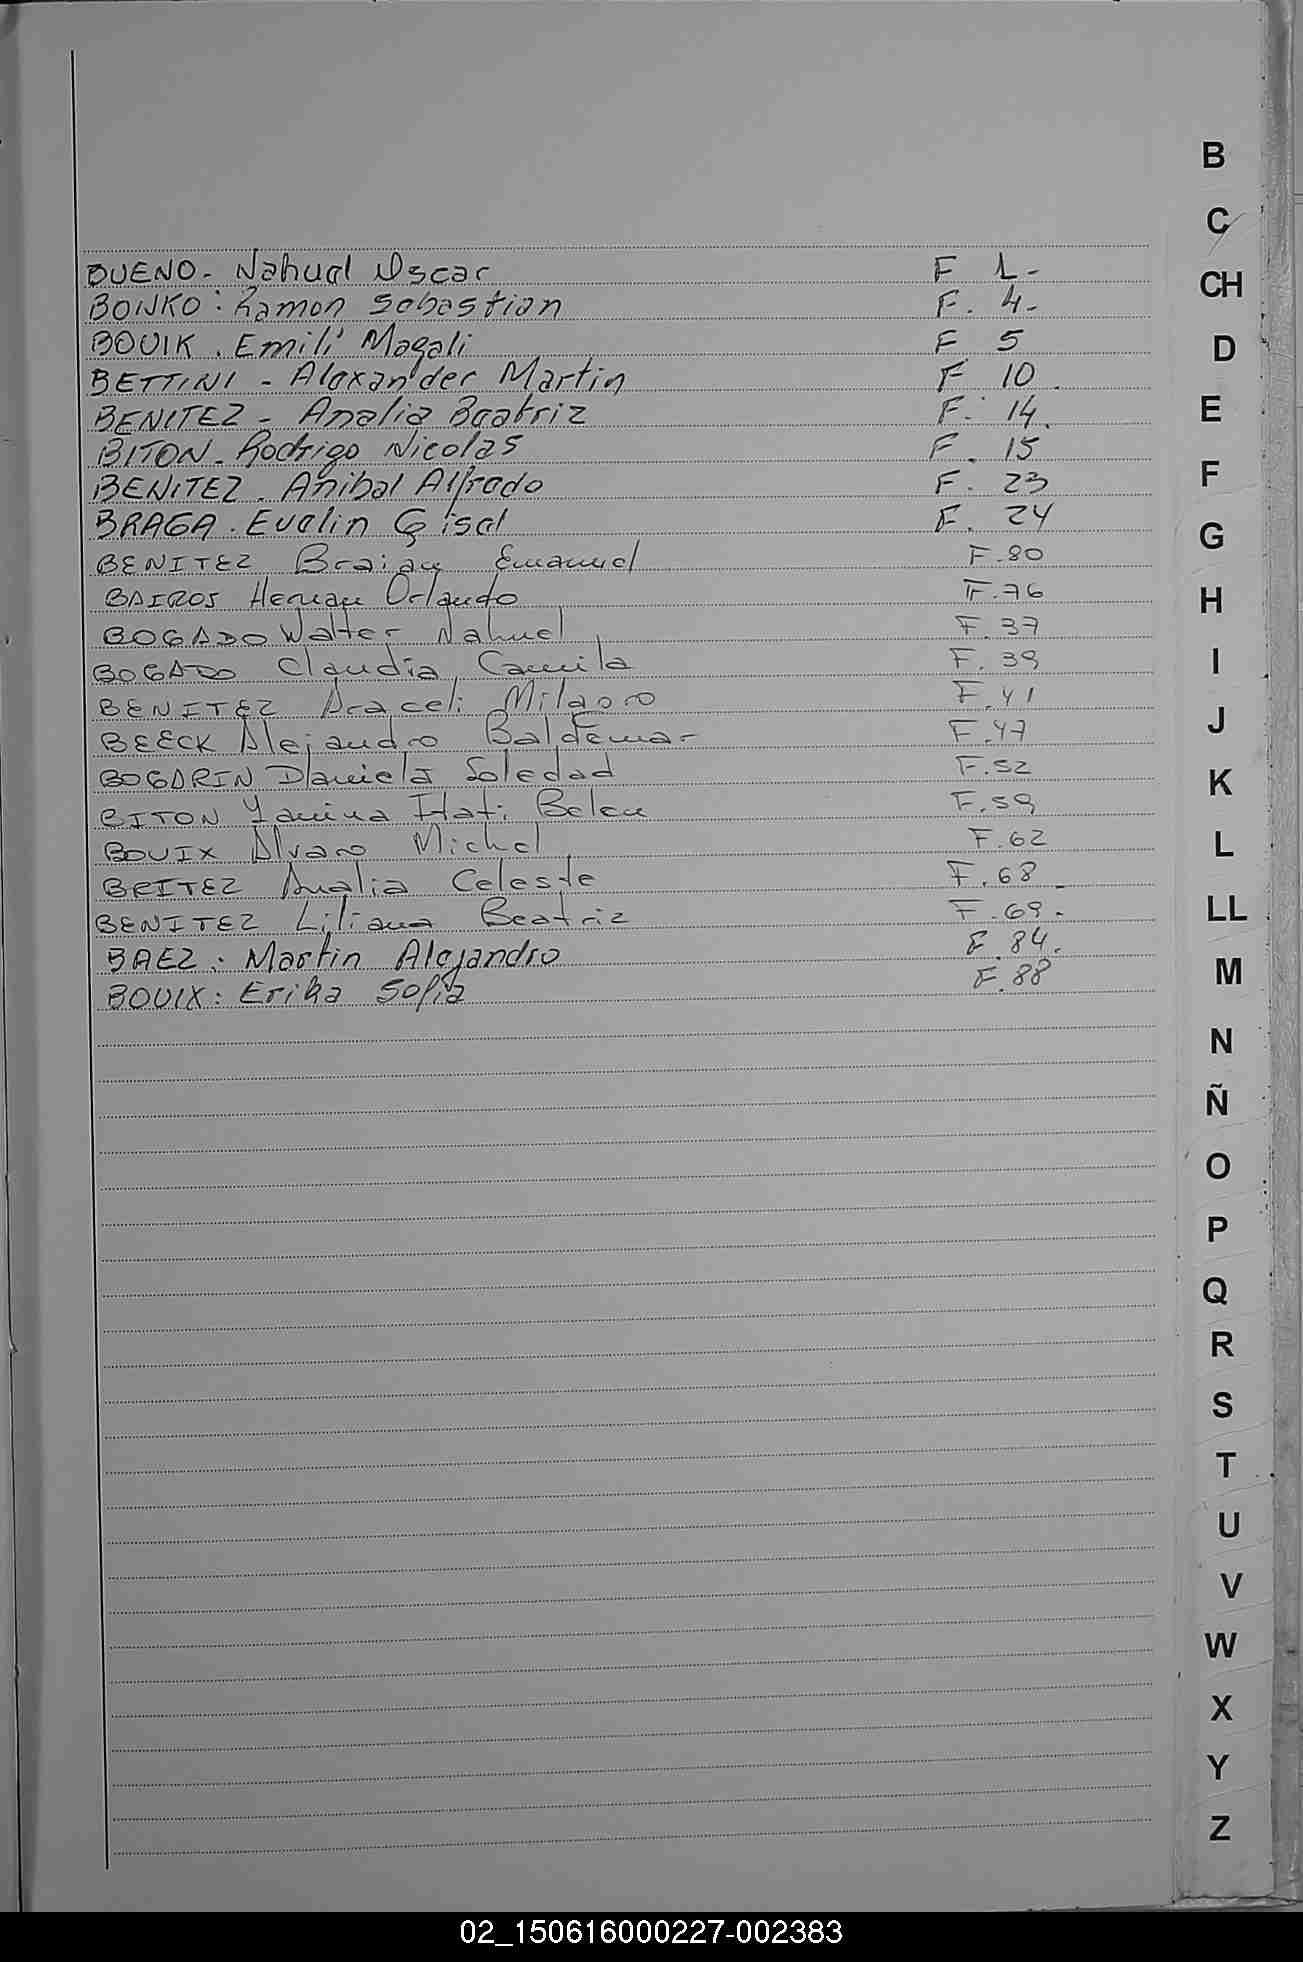 BUENO - Nahuel Oscar F 1 -
BOINKO : Ramon Sebastian F. 4 -
BOUIK . Emili Magali F 5
BETTINI - Alexander Martin F 10 .
BENITEZ - Analia Beatriz F. 14.
BITON - Rodrigo Nicolas F. 15
BENITEZ . Anibal Alfredo F. 23
BRAGA . Evelin Gisel F. 24
BENITEZ Braian Emanuel F.80
BAIROS Hernan Orlando F.76
BOGADO Walter Nahuel F.37
BOGADO Claudia Camila F. 39
BENITEZ Araceli Milagro F.41
BEECK Alejandro Baldemar F.47
BOGARIN Daniela Soledad F.52
BITON Yanina Itati Belen F.59
BOUIX Alvaro Michel F.62
BRITEZ Analia Celeste F.68 -
BENITEZ Liliana Beatriz F.69.
BAEZ : Martin Alejandro F.84.
BOUIX : Erika Sofia F.88
B
C
CH
D
E
F
G
H
I
J
K
L
LL
M
N
Ñ
O
P
Q
R
S
T
U
V
W
X
Y
Z
02_150616000227-002383